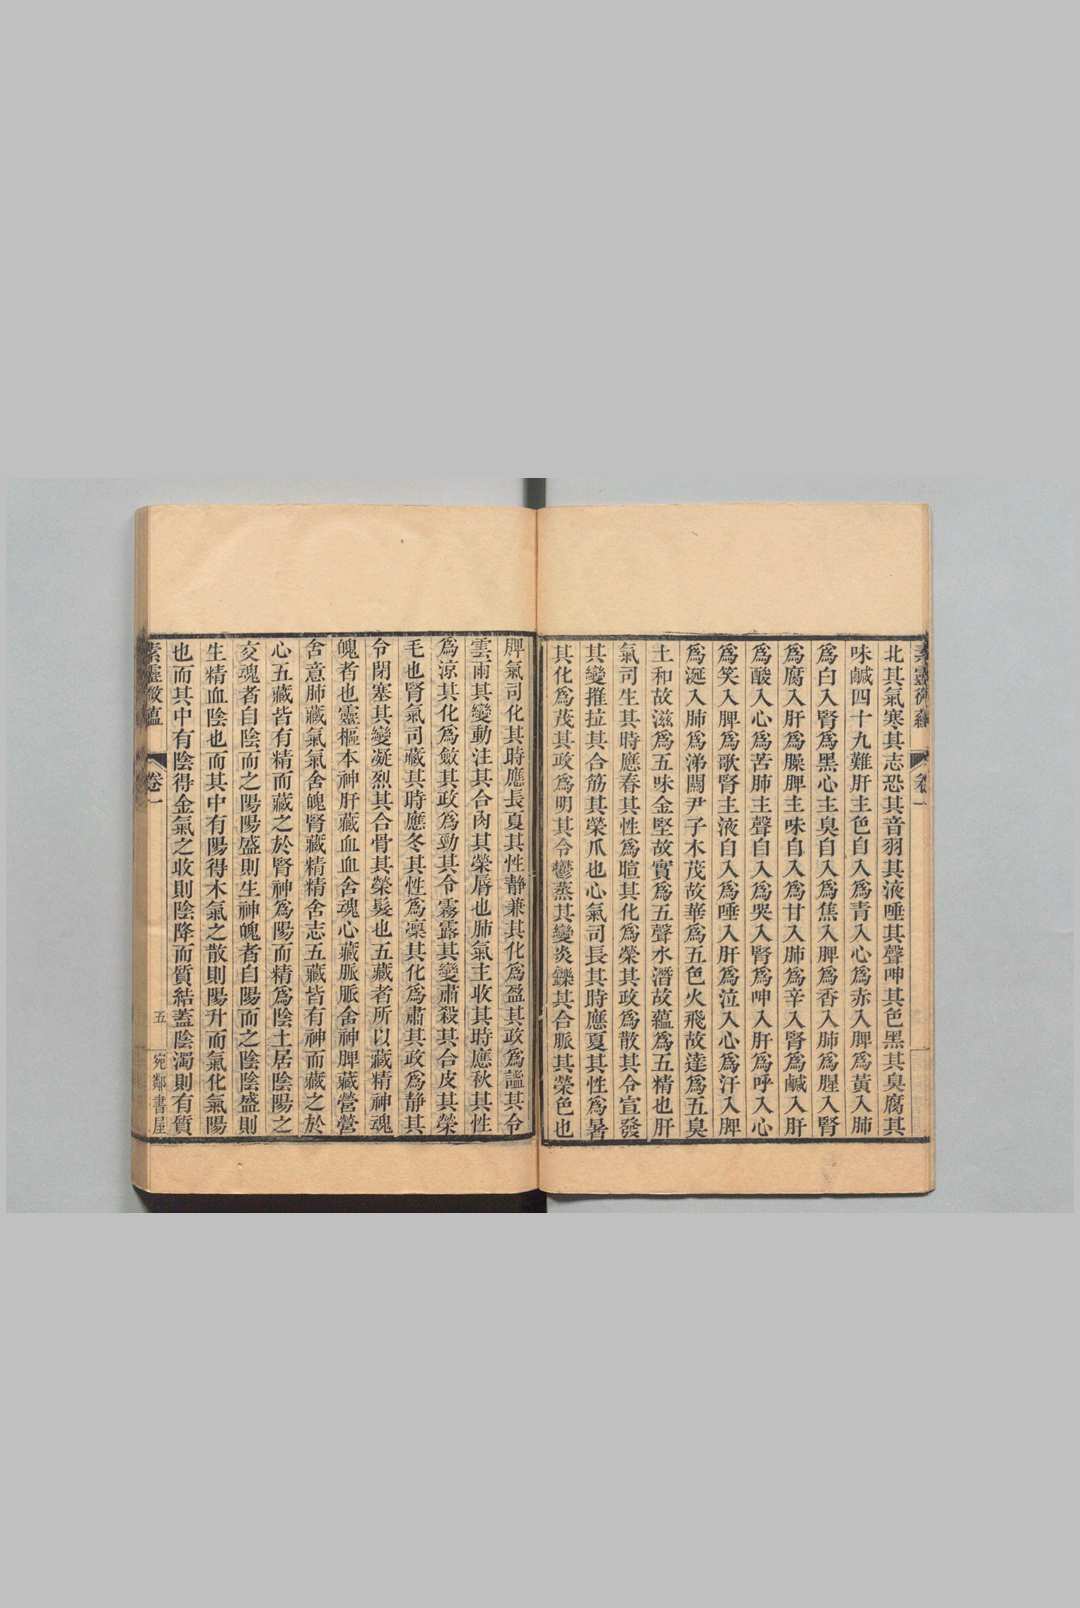 素靈微蘊 卷一
北其氣寒其志恐其音羽其液唾其聲呻其色黑其臭腐其
味鹹四十九難肝主色自入爲青入心爲赤入脾爲黃入肺
爲白入腎爲黑心主臭自入爲焦入脾爲香入肺爲腥入腎
爲腐入肝爲臊脾主味自入爲甘入肺爲辛入腎爲鹹入肝
爲酸入心爲苦肺主聲自入爲哭入腎爲呻入肝爲呼入心
爲笑入脾爲歌腎主液自入爲唾入肝爲泣入心爲汗入脾
爲涎入肺爲涕關尹子木茂故華爲五色火飛故達爲五臭
土和故滋爲五味金堅故實爲五聲水潛故蘊爲五精也肝
氣司生其時應春其性爲暄其化爲榮其政爲散其令宣發
其變摧拉其合筋其榮爪也心氣司長其時應夏其性爲暑
其化爲茂其政爲明其令鬱蒸其變炎鑠其合脈其榮色也
脾氣司化其時應長夏其性静兼其化爲盈其政爲謐其令
雲雨其變動注其合肉其榮脣也肺氣主收其時應秋其性
爲涼其化爲斂其政爲勁其令霧露其變肅殺其合皮其榮
毛也腎氣司藏其時應冬其性爲凛其化爲肅其政爲静其
令閉塞其變凝烈其合骨其榮髮也五藏者所以藏精神魂
魄者也靈樞本神肝藏血血舍魂心藏脈脈舍神脾藏營營
舍意肺藏氣氣舍魄腎藏精精舍志五藏皆有神而藏之於
心五藏皆有精而藏之於腎神爲陽而精爲陰土居陰陽之
交魂者自陰而之陽陽盛則生神魄者自陽而之陰陰盛則
生精血陰也而其中有陽得木氣之散則陽升而氣化氣陽
也而其中有陰得金氣之收則陰降而質結蓋陰濁則有質
素靈微蘊 卷一 五 宛鄰書屋